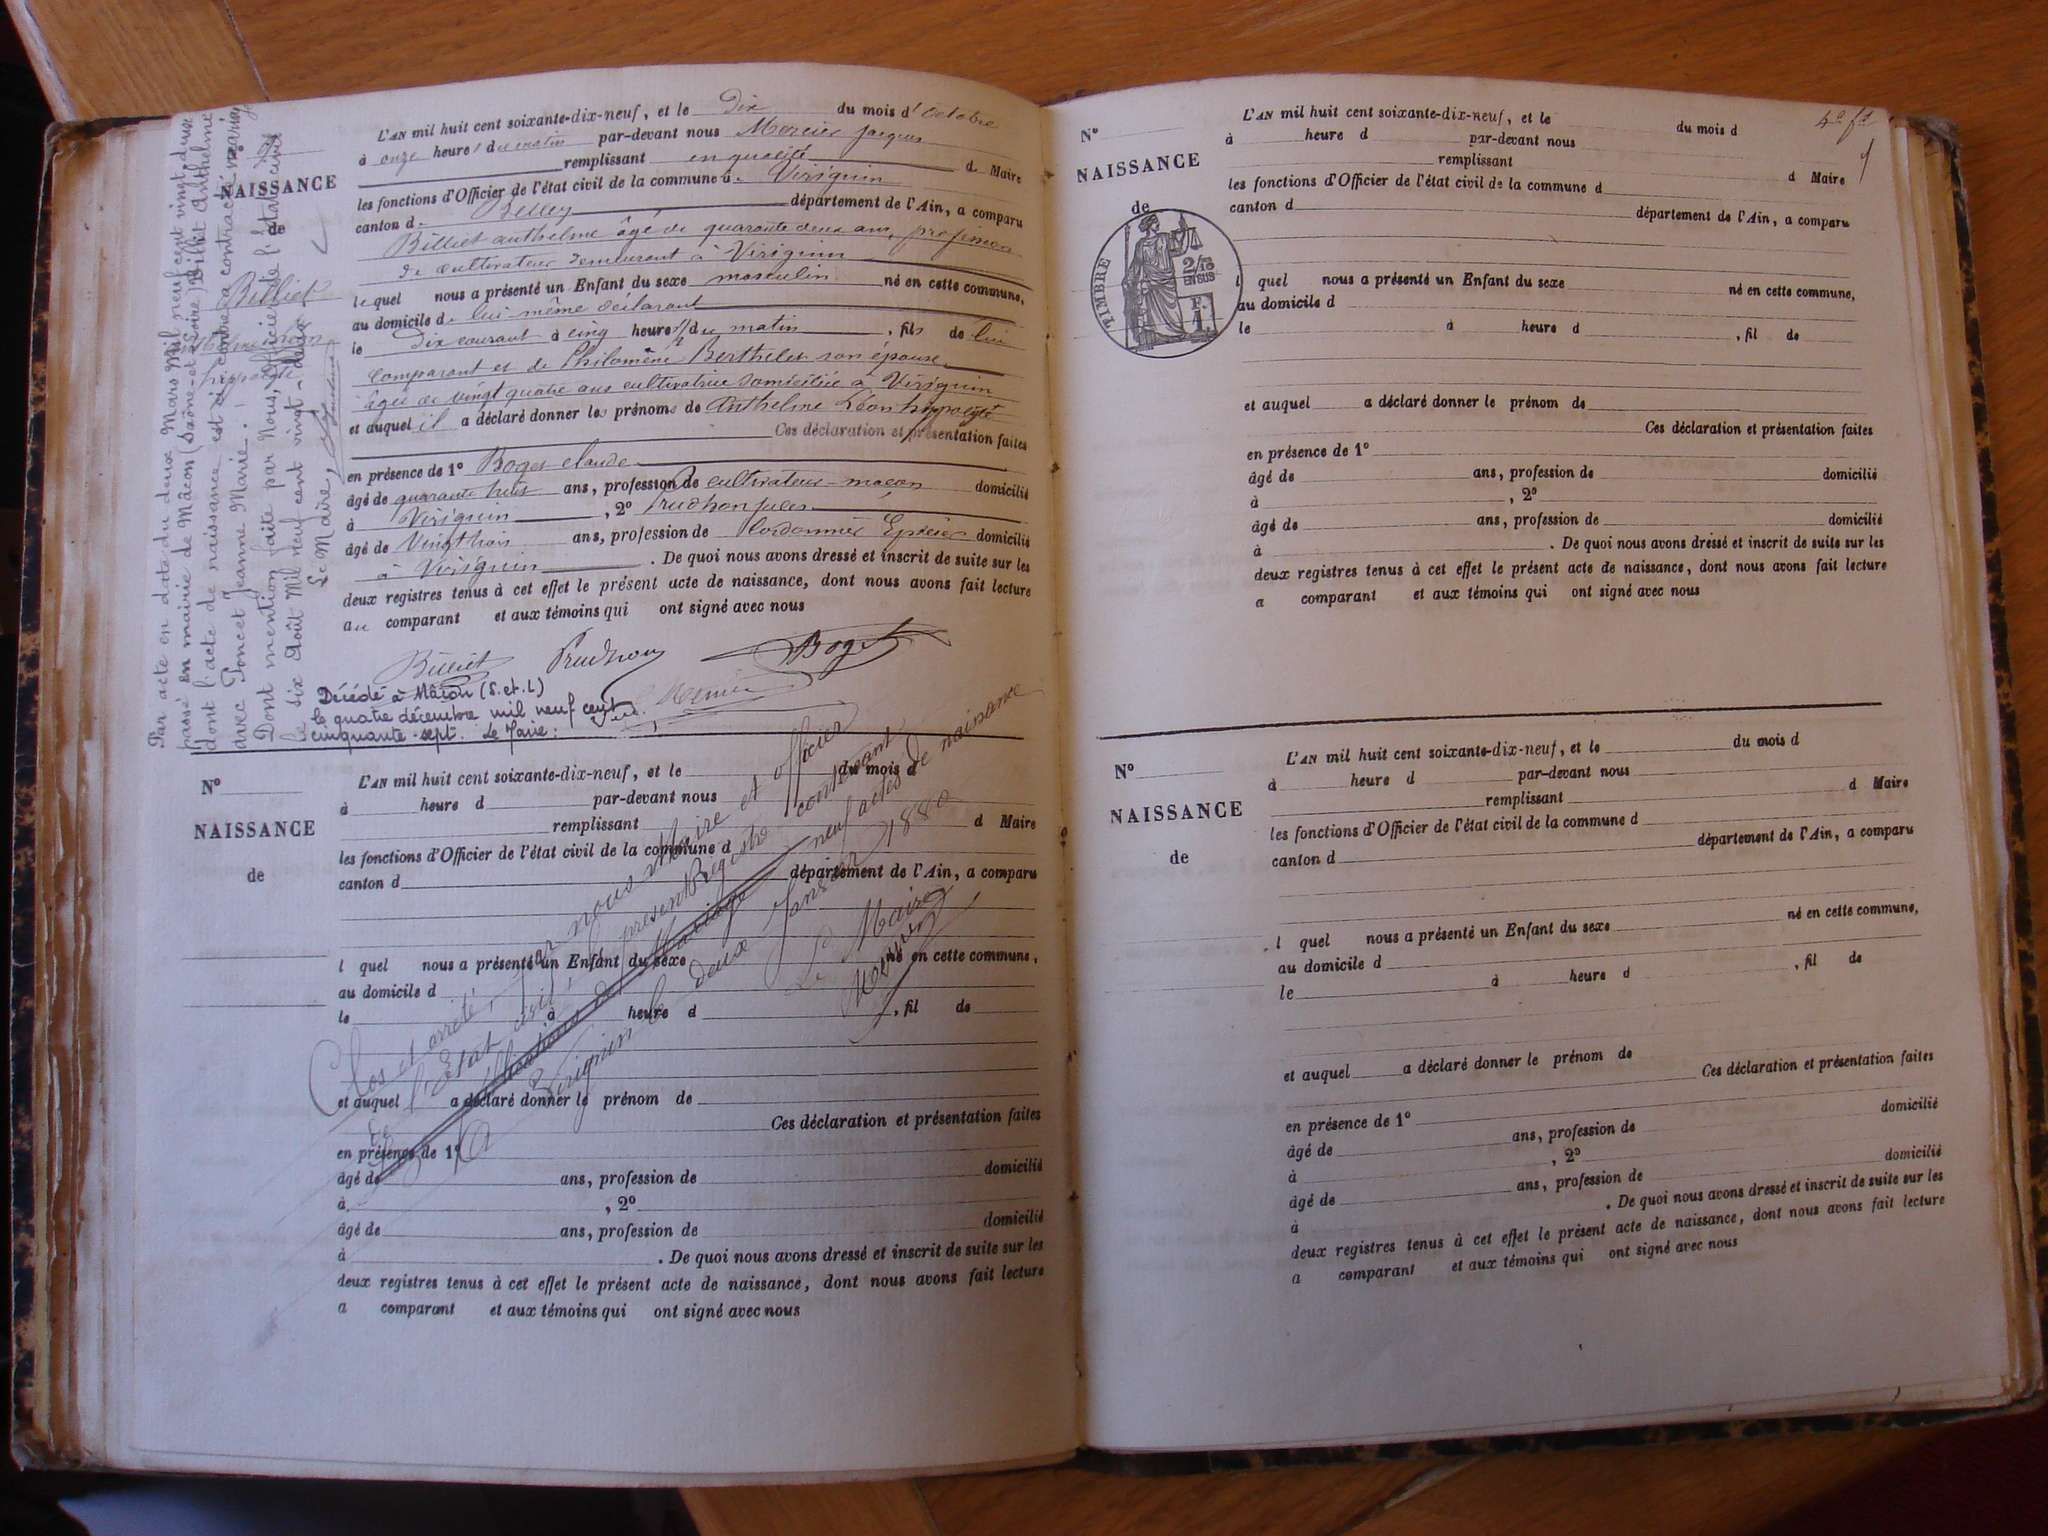 Par acte en date du deux Mars Mil neuf cent vingt deux
passé en mairie de Mâcon (Saône-et-Loire) Billiet Anthelme
dont l'acte de naissance est ci contre a contracté mariage
avec Poncet Jeanne Marie.
Dont mention faite par Nous, officier de l'état civil
le six Août Mil neuf cent vingt-deux
Le Maire,
N° 9
NAISSANCE
de
Billiet
hippolyte
L'AN mil huit cent soixante-dix-neuf, et le Dix du mois d'octobre
à onze heures du matin par-devant nous Mercier Jacques
remplissant en qualité d Maire
les fonctions d'Officier de l'état civil de la commune de Virignin
canton de Belley département de l'Ain, a comparu
Billiet anthelme âgé de quarante deux ans, profession
de cultivateur demeurant à Virignin
lequel nous a présenté un Enfant du sexe masculin né en cette commune,
au domicile de lui même déclarant
le Dix courant à cinq heures du matin, fils de lui
comparant et de Philomène Berthelet son épouse
âgée de vingt quatre ans cultivatrice domiciliée à Virignin
et auquel il a déclaré donner les prénoms de Anthelme Léon hippolyte
Ces déclaration et présentation faites
en présence de 1° Boget claude
âgé de quarante huit ans, profession de cultivateur-maçon domicilié
à Virignin, 2° Prudhon jules
âgé de Vingt trois ans, profession de Cordonnier Epicier domicilié
à Virignin. De quoi nous avons dressé et inscrit de suite sur les
deux registres tenus à cet effet le présent acte de naissance, dont nous avons fait lecture
au comparant et aux témoins qui ont signé avec nous
Billiet Prudhon Boget
Mercier
Décédé à Mâcon (S.et.L)
le quatre décembre mil neuf cent
cinquante-sept. Le Maire:
N°
NAISSANCE
de
L'AN mil huit cent soixante-dix-neuf, et le du mois d
à heure d par-devant nous
remplissant d Maire
les fonctions d'Officier de l'état civil de la commune d
canton d département de l'Ain, a comparu
l quel nous a présenté un Enfant du sexe né en cette commune,
au domicile d
le à heure d , fil de
et auquel a déclaré donner le prénom de
Ces déclaration et présentation faites
en présence de 1°
âgé de ans, profession de domicilié
à , 2°
âgé de ans, profession de domicilié
à . De quoi nous avons dressé et inscrit de suite sur les
deux registres tenus à cet effet le présent acte de naissance, dont nous avons fait lecture
a comparant et aux témoins qui ont signé avec nous
Clos et arrêté, par nous Maire et officier
de l'état civil, le présent Régistre contenant
neuf actes de naissance
A Virignin le deux Janvier 1880
Le Maire
Mercier
4e ft
N°
NAISSANCE
de
TIMBRE
2/10
EN SUS
F.
1.
L'AN mil huit cent soixante-dix-neuf, et le du mois d
à heure d par-devant nous
remplissant d Maire
les fonctions d'Officier de l'état civil de la commune d
canton d département de l'Ain, a comparu
l quel nous a présenté un Enfant du sexe né en cette commune,
au domicile d
le à heure d , fil de
et auquel a déclaré donner le prénom de
Ces déclaration et présentation faites
en présence de 1°
âgé de ans, profession de domicilié
à , 2°
âgé de ans, profession de domicilié
à . De quoi nous avons dressé et inscrit de suite sur les
deux registres tenus à cet effet le présent acte de naissance, dont nous avons fait lecture
a comparant et aux témoins qui ont signé avec nous
N°
NAISSANCE
de
L'AN mil huit cent soixante-dix-neuf, et le du mois d
à heure d par-devant nous
remplissant d Maire
les fonctions d'Officier de l'état civil de la commune d
canton d département de l'Ain, a comparu
l quel nous a présenté un Enfant du sexe né en cette commune,
au domicile d
le à heure d , fil de
et auquel a déclaré donner le prénom de
Ces déclaration et présentation faites
en présence de 1°
âgé de ans, profession de domicilié
à , 2°
âgé de ans, profession de domicilié
à . De quoi nous avons dressé et inscrit de suite sur les
deux registres tenus à cet effet le présent acte de naissance, dont nous avons fait lecture
a comparant et aux témoins qui ont signé avec nous